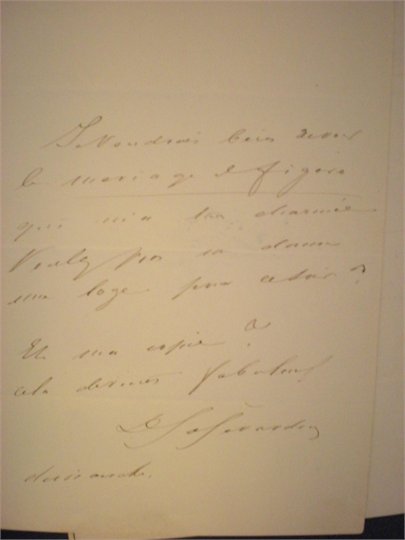 Je voudrais bien revoir
le mariage de figaro
qui m'a tant charmée
Voulez vous me donner
une loge pour ce soir ?
Et ma copie ?
cela devient fabuleux !
dimanche.